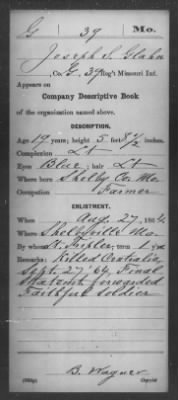 G 39 Mo.
Joseph S. Glahn
, Co. G, 39 Reg't Missouri Inf.
Appears on
Company Descriptive Book
of the organization named above.
DESCRIPTION.
Age 19 years; height 5 feet 8½ inches.
Complexion Lt
Eyes Blue; hair Lt
Where born Shelby Co. Mo
Occupation Farmer
ENLISTMENT.
When Aug. 27, 1864
Where Shelbyville Mo.
By whom term 1 y'rs
Remarks: Killed Centralia
Sept. 27 '64. Final
Statemt. forwarded
Faithful Soldier
B. Wagner
Copyist